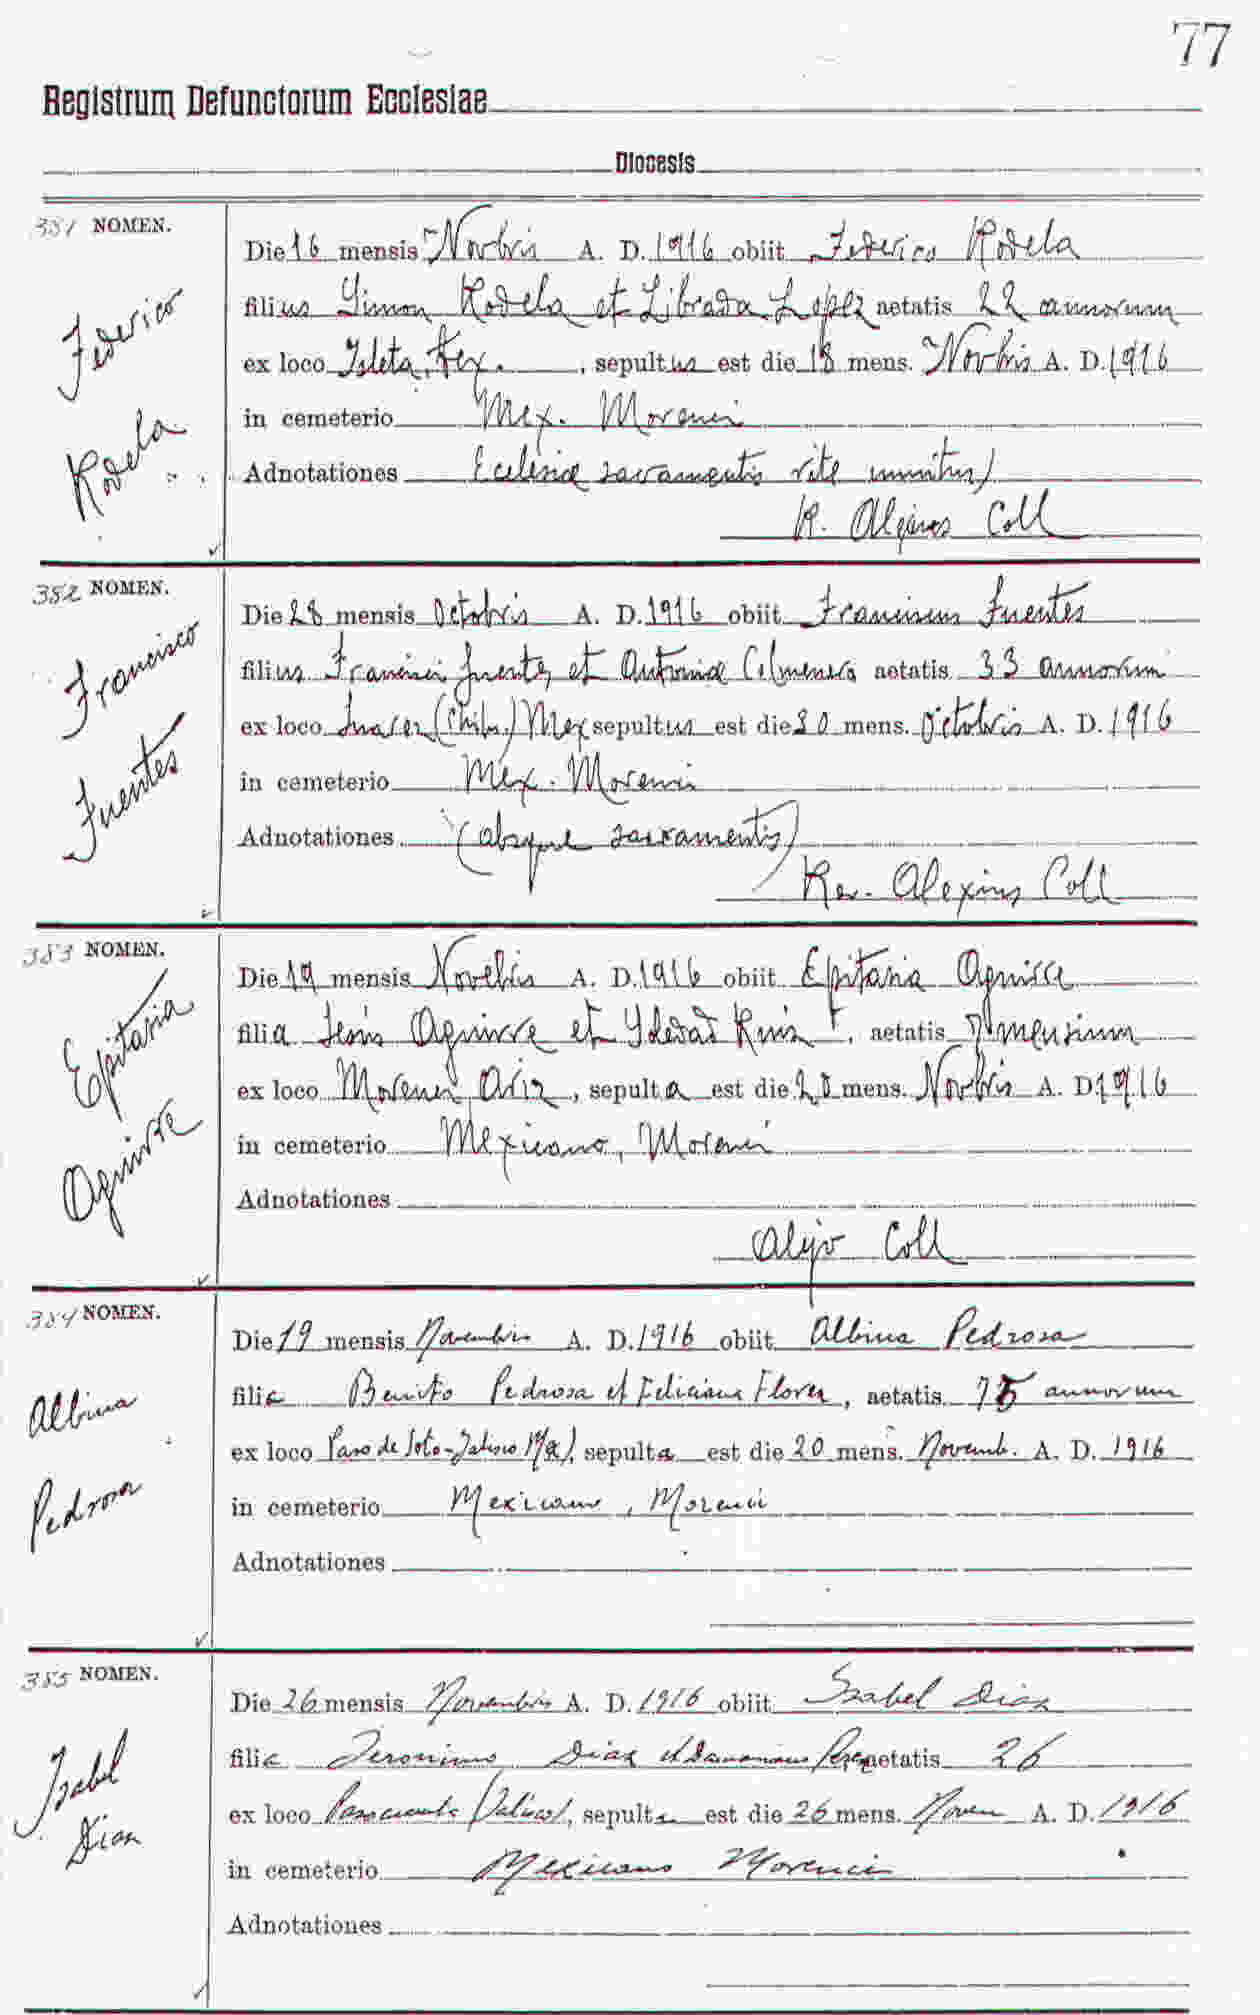 77
Registrum Defunctorum Ecclesiae
Diocesis
381 NOMEN.
Federico
Rodela
Die 16 mensis Novbris A. D. 1916 obiit Federico Rodela
filius Simon Rodela et Librada Lopez aetatis 22 annorum
ex loco Isleta, Tex. , sepultus est die 18 mens. Novbris A. D. 1916
in cemeterio Mex. Morenci
Adnotationes Eclesiae sacramentis rite munitus)
R. Alexius Coll
382 NOMEN.
Francisco
Fuentes
Die 28 mensis Octobris A. D. 1916 obiit Franciscus Fuentes
filius Francisci Fuentes et Antoniae Colmenero aetatis 33 annorum
ex loco Juarez (Chih.) Mex sepultus est die 30 mens. Octobris A. D. 1916
in cemeterio Mex. Morenci
Adnotationes (absque sacramentis)
Rev. Alexius Coll
383 NOMEN.
Epitasia
Aguirre
Die 19 mensis Novebris A. D. 1916 obiit Epitasia Aguirre
filia Jesús Aguirre et Soledad Ruis , aetatis 7 mensium
ex loco Morenci Ariz , sepulta est die 20 mens. Novbris A. D. 1916
in cemeterio Mexicano, Morenci
Adnotationes
Alejo Coll
384 NOMEN.
Albina
Pedrosa
Die 19 mensis Novembris A. D. 1916 obiit Albina Pedrosa
filia Benito Pedrosa et Feliciana Flores , aetatis 75 annorum
ex loco Paso de Soto-Jalisco , sepulta est die 20 mens. Novemb. A. D. 1916
in cemeterio Mexicano , Morenci
Adnotationes
385 NOMEN.
Isabel
Diaz
Die 26 mensis Novembris A. D. 1916 obiit Isabel Diaz
filia Jeronimo Diaz et Perez aetatis 26
ex loco (Jalisco), sepulta est die 26 mens. Novem A. D. 1916
in cemeterio Mexicano Morenci
Adnotationes